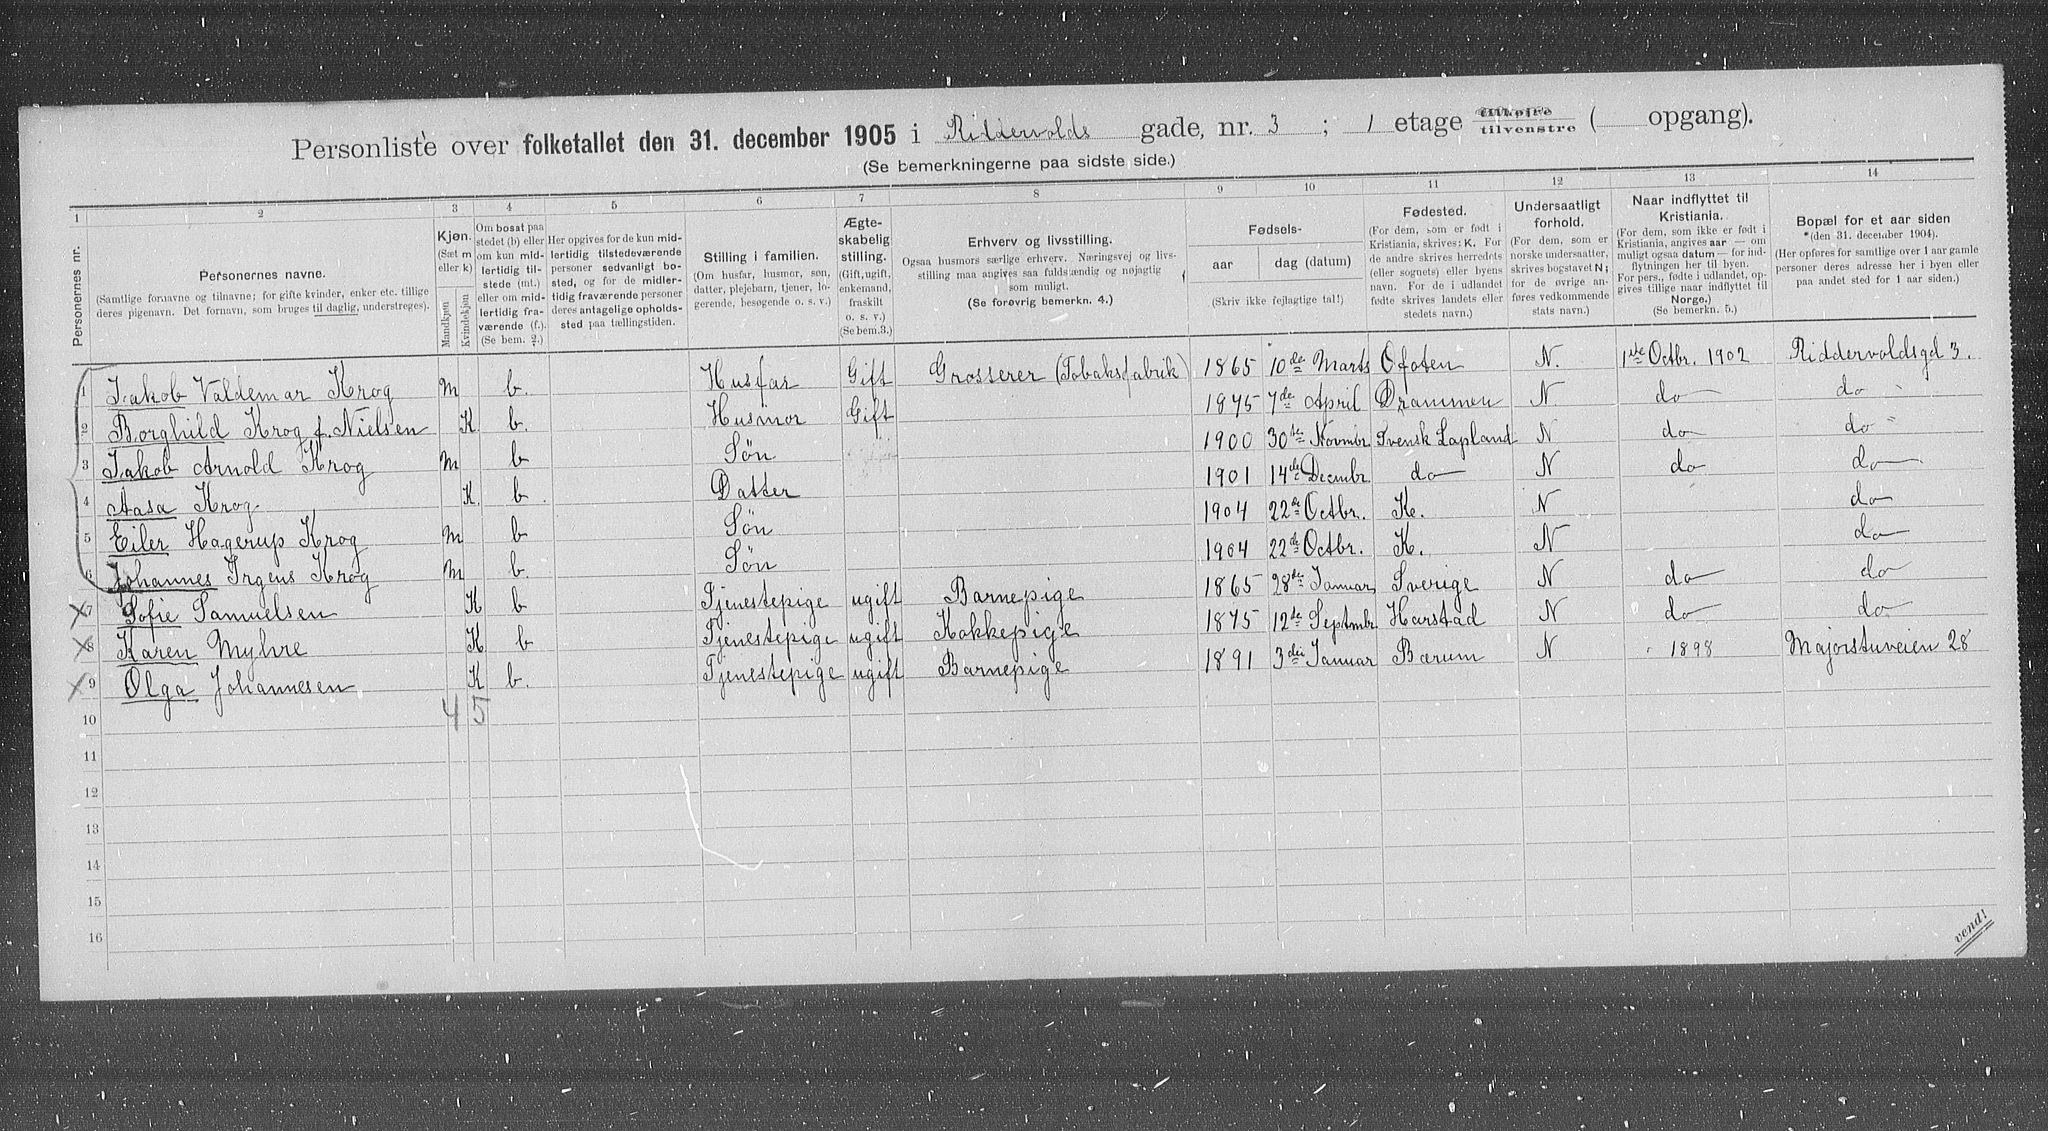 Personliste over folketallet den 31. december 1905 i Riddervolds gade, nr. 3 ; 1 etage tilhøjre tilvenstre ( opgang).
(Se bemerkningerne paa sidste side.)
1 2 3 4 5 6 7 8 9 10 11 12 13 14
Personernes nr.
Personernes navne.
(Samtlige fornavne og tilnavne; for gifte kvinder, enker etc. tillige
deres pigenavn. Det fornavn, som bruges til daglig, understreges).
Kjøn.
(Sæt m
eller k)
Mandkjøn
Kvindekjøn
Om bosat paa
stedet (b) eller
om kun mid-
lertidig til-
stede (mt.)
eller om mid-
lertidig fra-
værende (f.).
(Se bem. 2.)
Her opgives for de kun mid-
lertidig tilstedeværende
personer sedvanligt bo-
sted, og for de midler-
tidig fraværende personer
deres antagelige opholds-
sted paa tællingstiden.
Stilling i familien.
(Om husfar, husmor, søn,
datter, plejebarn, tjener, lo-
gerende, besøgende o. s. v.)
Ægte-
skabelig
stilling.
(Gift, ugift,
enkemand,
fraskilt
o. s. v.)
(Se bem.3.)
Erhverv og livsstilling.
Ogsaa husmors særlige erhverv. Næringsvej og livs-
stilling maa angives saa fuldstændig og nøjagtig
som muligt.
(Se forøvrig bemerkn. 4.)
Fødsels-
aar dag (datum)
(Skriv ikke fejlagtige tal!)
Fødested.
(For dem, som er født i
Kristiania, skrives: K. For
de andre skrives herredets
(eller sognets) eller byens
navn. For de i udlandet
fødte skrives landets eller
stedets navn.)
Undersaatligt
forhold.
(For dem, som er
norske undersaatter,
skrives bogstavet N;
for de øvrige an-
føres vedkommende
stats navn.)
Naar indflyttet til
Kristiania.
(For dem, som ikke er født i
Kristiania, angives aar — om
muligt ogsaa datum — for ind-
flytningen her til byen.
For pers., fødte i udlandet, op-
gives tillige naar indflyttet til
Norge.)
(Se bemerkn. 5.)
Bopæl for et aar siden
*(den 31. december 1904).
(Her opføres for samtlige over 1 aar gamle
personer deres adresse her i byen eller
paa andet sted for 1 aar siden.)
1 Jakob Valdemar Krog m b. Husfar Gift Grosserer (Tobaksfabrik) 1865 10de Marts Ofoten N. 1ste Octbr. 1902 Riddervoldsgd 3.
2 Borghild Krog f. Nielsen K b. Husmor Gift 1875 7de April Drammen N do do
3 Jakob Arnold Krog m b Søn 1900 30te Novmbr Svensk Lapland N do do
4 Aasa Krog. K. b Datter 1901 14de Decembr do N do do
5 Eiler Hagerup Krog m b Søn 1904 22de Octbr. K. N do
6 Johannes Irgens Krog m b. Søn 1904 22de Octbr. K. N do
7 Sofie Samuelsen K b Tjenestepige ugift Barnepige 1865 28de Januar Sverige N do do
8 Karen Myhre K b Tjenestepige ugift Kokkepige 1875 12te Septmbr Harstad N do do
9 Olga Johannesen K b. Tjenestepige ugift Barnepige 1891 3die Januar Bærum N 1898 Majorstuveien 28
10 4 5
11
12
13
14
15
16
vend!